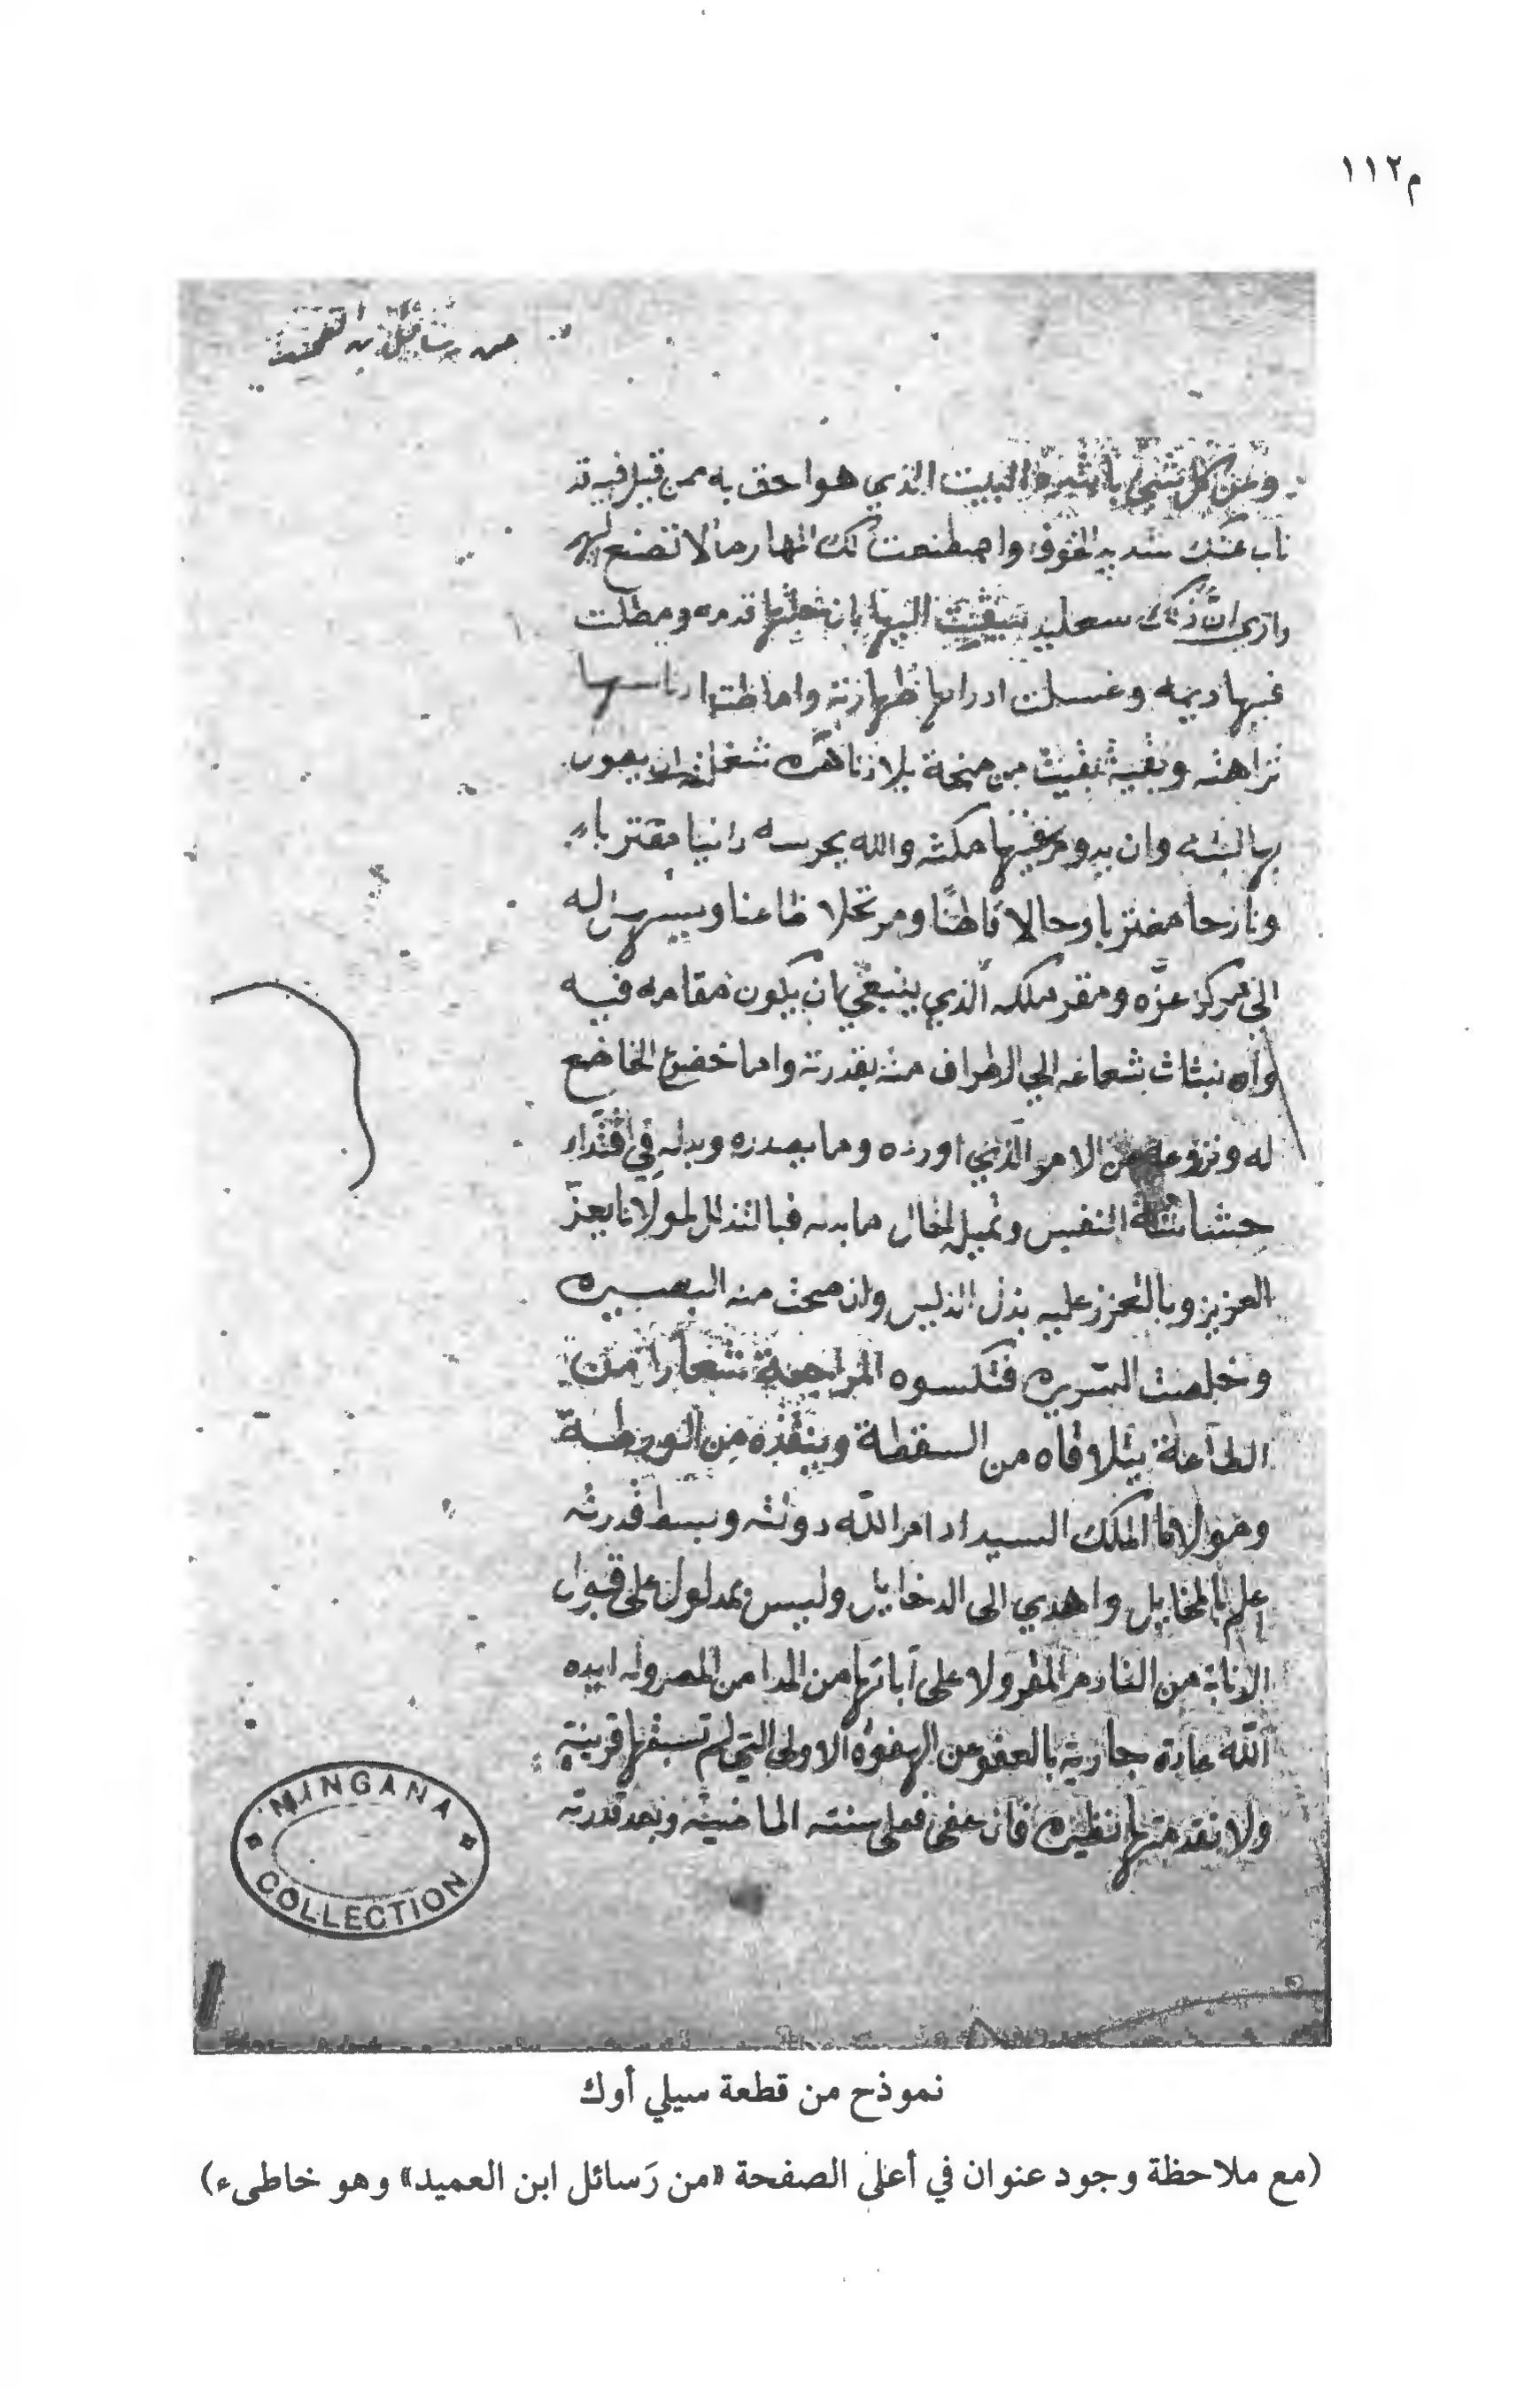 م١١٢
من رسائل ابن العميد
وعن كل شيء البيت الذي هو احق به ممن قبل فيه قد
ناب عنك شديد الخوف واصطنعت لك المهار ما لا تصنع
واري ان ذلك اليها بان قدمه ومطلت
فيها ديمه وغسلت ادرانها طهارته واماطت ادناسها
نزاهته وبقية بقيت من
بها لبثه وان يدوم فيها مكثه والله يحرسه دانيا مقتربا
ونازحا مغتربا وحالا قاطنا ومرتحلا ظاعنا ويسهل له
الى مركز عزه ومقر ملكه الذي ينبغي ان يكون مقامه فيه
شعاعه الي الاطراف منه بقدرته واما خضوع الخاضع
له ونزوعه عن الامر الذي اورده وما يصدره وبدله في اقتدار
حشاشة النفس وتميل لحال ما بدنه فبالتذلل لمولانا يعز
العزيز وبالتعزز عليه يذل الذليل وان صحت منه البصيره
وخلصت السريره فتكسوه المراجعة شعارا من
الطاعة يتلافاه من السقطة وينقذه من الورطة
ومولانا الملك السيد ادام الله دولته وبسط قدرته
اعلم بالمخايل واهدي الى الدخايل وليس بمدلول على قبول
الانابة من النادم المقر ولا على آبائها من المدامن المصر وله ايده
الله عادة جارية بالعفو عن الهفوة الاولى التي لم تسبقها قرينة
ولا تقدمتها نظيره فان عفى فعلى سنته الماضية وبعد قدرته
MINGANA
COLLECTION
نموذج من قطعة سيلي أوك
(مع ملاحظة وجود عنوان في أعلى الصفحة «من رَسائل ابن العميد» وهو خاطىء)